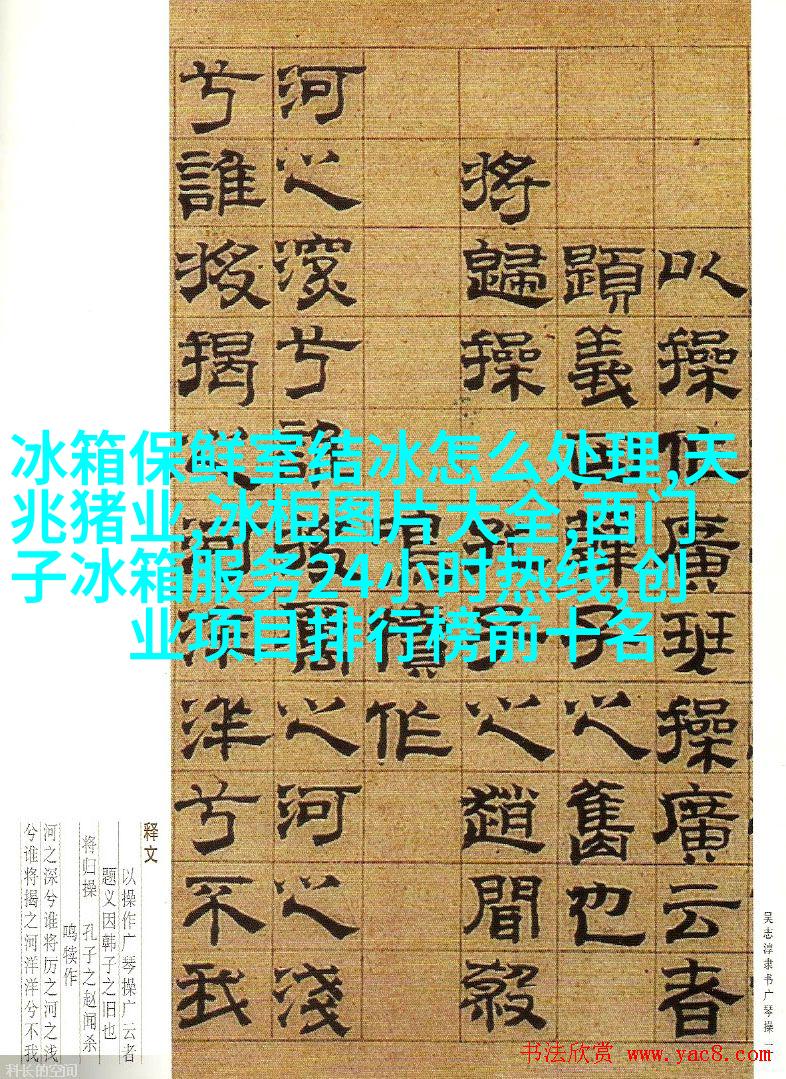 以操作廣班操廣云者
題義因韓子之舊也
將歸操 孔子之趙聞殺
鳴犢作
河之深兮誰將厲之河之淺
兮誰將揭之河洋洋兮不我
冰箱保鲜室结冰怎么处理,天
兆猪业,冰柜图片大全,西门
子冰箱服务24小时热线,创
业项目排行榜前十名
释文
以操作广琴操广云者
题义因韩子之旧也
将归操 孔子之赵闻杀
鸣犊作
河之深兮谁将厉之河之浅
兮谁将揭之河洋洋兮不我
吴志淳隶书广琴操
书法欣赏 www.yac8.com
科长的空间